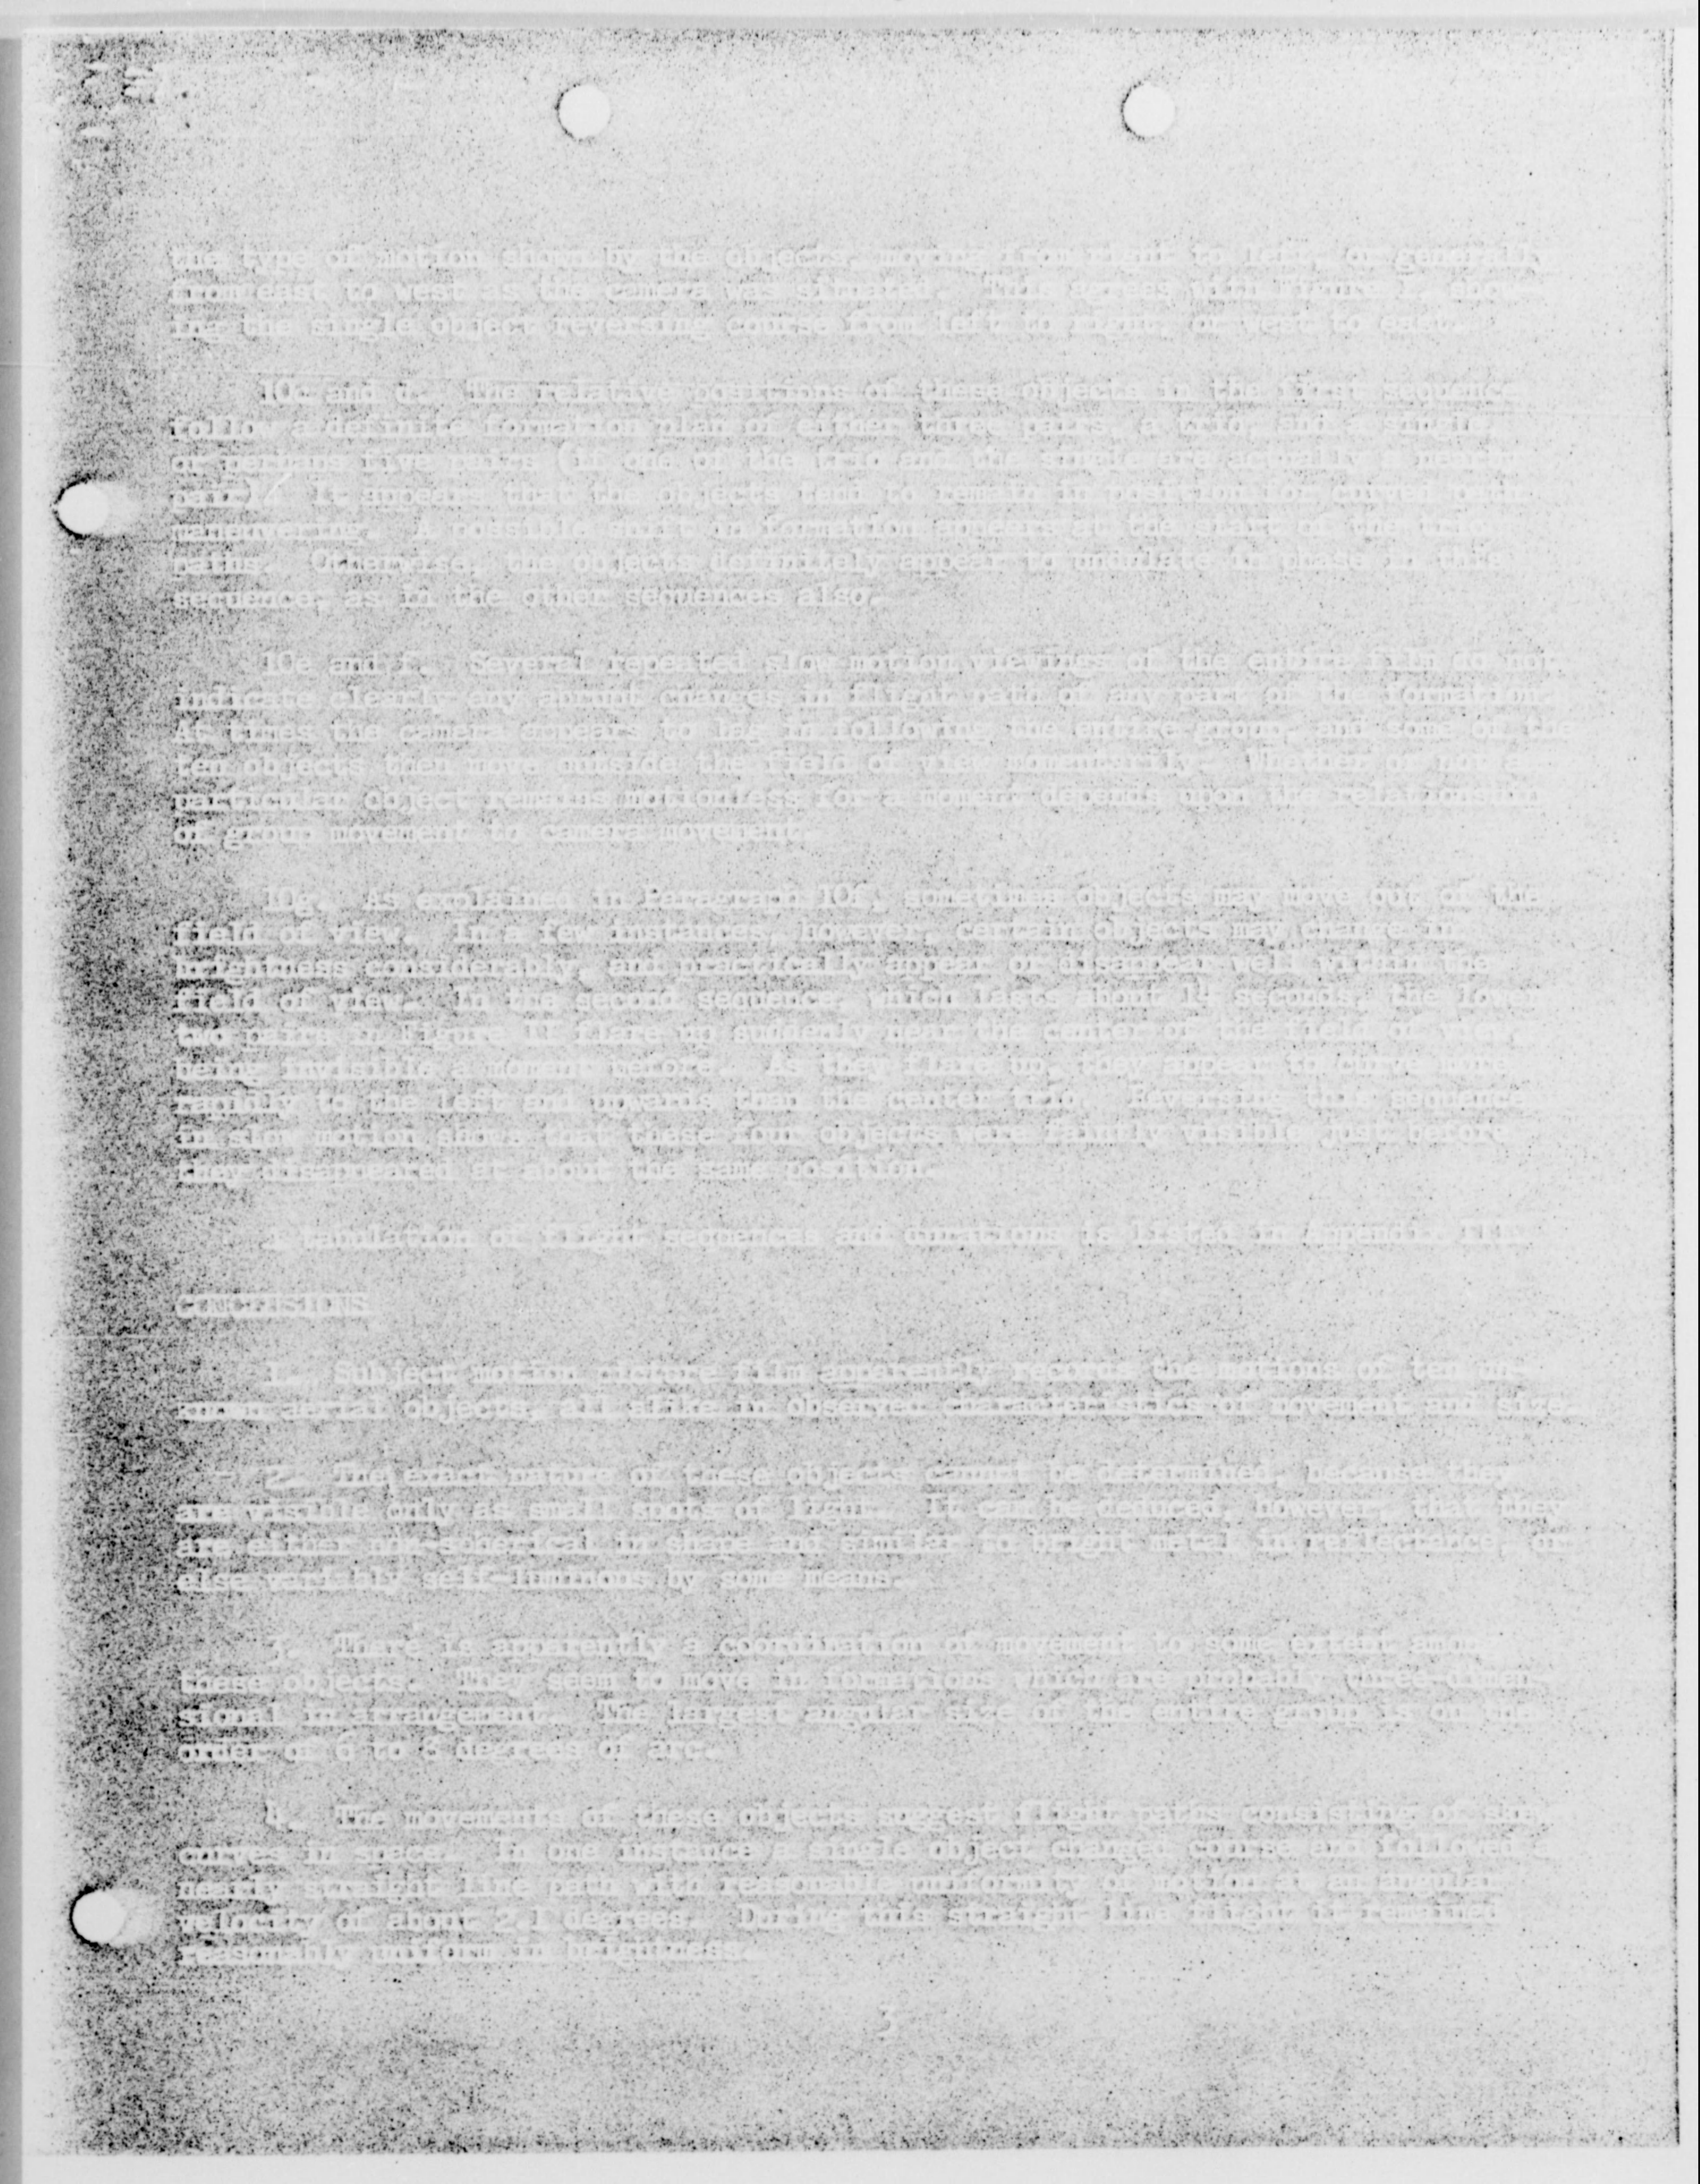 the type of motion shown by the objects, moving from right to left, or generally
from east to west as the camera was situated. This agrees with Figure
ing the single object reversing course from left to right, or west to east.
10c and d. The relative positions of these objects in the first sequence
follow a definite formation plan of either three pairs, a trio and a single,
or perhaps five pairs (if one of the trio and the single are actually a
pair). It appears that the objects tend to remain in position for curved path
maneuvering. A possible in formation appears at the start of the
paths. Otherwise, the objects definitely appear to undulate in phase in this
sequence, as in the other sequences also.
10e and f. Several repeated slow motion viewings of the entire film do not
indicate clearly any abrupt changes in flight path of any part of the formation.
At times the camera appears to lag in following the entire group, and some of the
ten objects then move outside the field of view momentarily. Whether or not a
particular object remains motionless for a moment depends upon the relationship
of group movement to camera movement.
10g. As explained in Paragraph 10f, sometimes objects may move out of the
field of view. In a few instances, however, certain objects may change in
brightness considerably, and practically appear or disappear well within the
field of view. In the second sequence, which lasts about seconds, the lower
two pairs in Figure flare up suddenly near the center of the field of view,
being invisible a moment before. As they flare up, they appear to curve more
rapidly to the left and upwards than the center trio. Reversing this sequence
in slow motion shows that these four objects were faintly visible just before
they disappeared at about the same position.
A tabulation of flight sequences and durations is listed in Appendix III.
CONCLUSIONS
1. Subject motion picture film apparently records the motions of ten un-
known aerial objects, all alike in observed characteristics of movement and size.
2. The exact nature of these objects cannot be determined, because they
are visible only as small spots of light. It can be deduced, however, that they
are either non-spherical in shape and similar to bright metal in reflectance, or
else variably self-luminous by some means.
3. There is apparently a coordination of movement to some extent among
these objects. They seem to move in formations which are probably three-dimen-
sional in arrangement. The largest angular size of the entire group is on the
order of 6 to degrees of arc.
4. The movements of these objects suggest flight paths consisting of
curves in space. In one instance a single object changed course and followed a
nearly straight line path with reasonable uniformity of motion at an angular
velocity of about 2.1 degrees. During this straight line flight it remained
reasonably uniform in brightness.